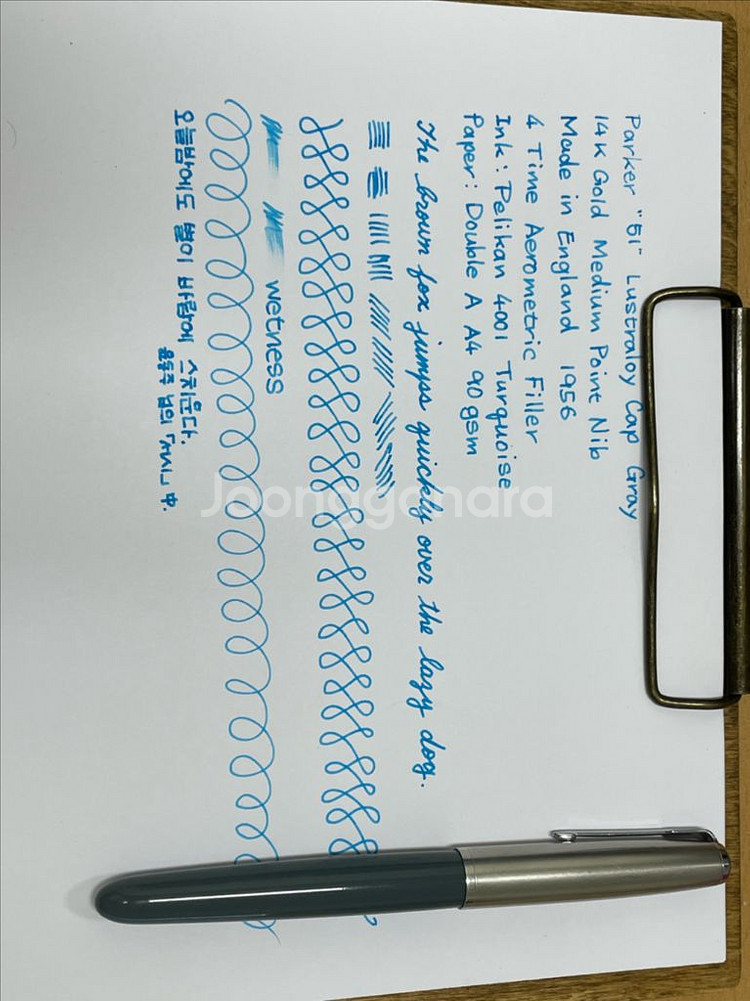 Parker "51" Lustraloy Cap Gray
14K Gold Medium Point Nib
Made in England 1956
4 Time Aerometric Filler
Ink : Pelikan 4001 Turquoise
Paper : Double A A4 90gsm
The brown fox jumps quickly over the lazy dog.
wetness
오늘밤에도 별이 바람에 스치운다.
윤동주 님의 「서시」 中.
Joonggonara